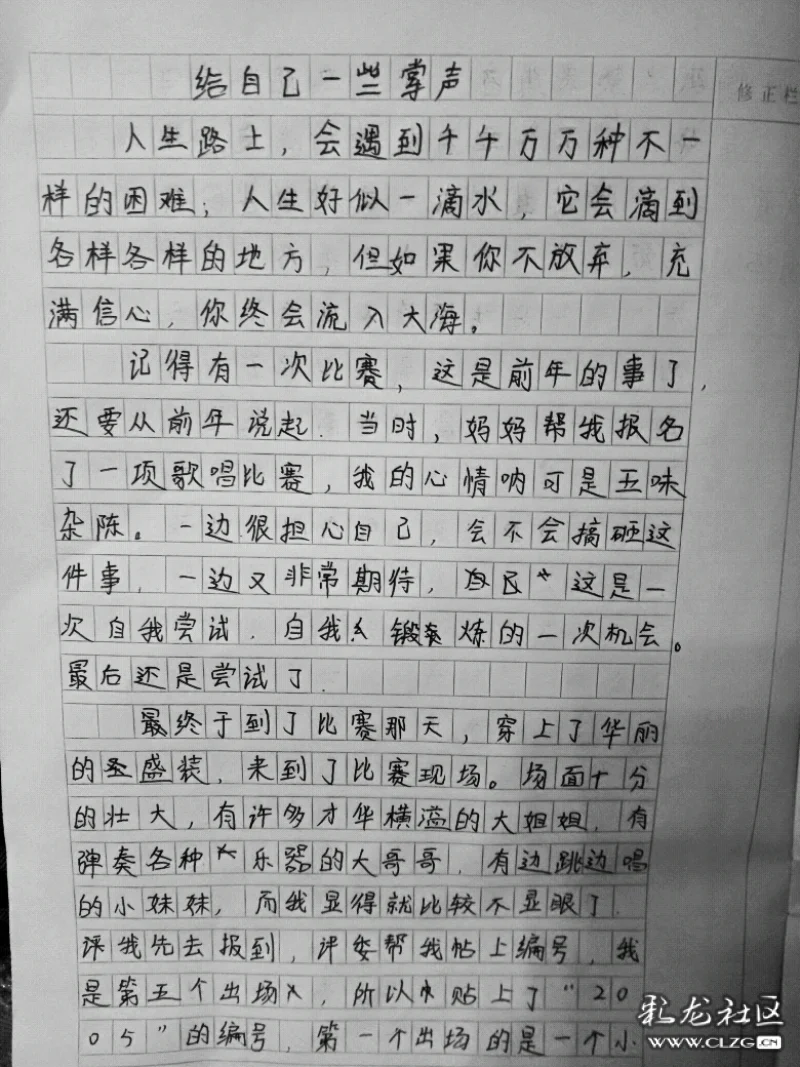 给自己一些掌声
修正栏
人生路上，会遇到千千万万种不一
样的困难；人生好似一滴水，它会滴到
各样各样的地方，但如果你不放弃，充
满信心，你终会流入大海。
记得有一次比赛，这是前年的事了，
还要从前年说起．当时，妈妈帮我报名
了一项歌唱比赛，我的心情呐可是五味
杂陈。一边很担心自己，会不会搞砸这
件事．一边又非常期待，这是一
次自我尝试．自我锻炼的一次机会。
最后还是尝试了．
最终于到了比赛那天，穿上了华丽
的盛装，来到了比赛现场。场面十分
的壮大，有许多才华横溢的大姐姐．有
弹奏各种乐器的大哥哥．有边跳边唱
的小妹妹，而我显得就比较不显眼了．
评我先去报到，评委帮我帖上编号，我
是第五个出场，所以贴上了“20
05”的编号，第一个出场的是一个小
彩龙社区
WWW.CLZG.CN